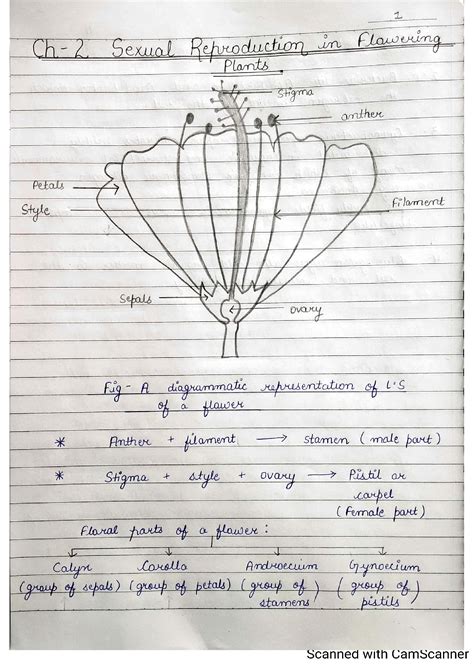 1
Ch-2 Sexual Reproduction in Flowering
Plants
Stigma
anther
Petals
Style
Filament
Sepals
ovary
Fig- A diagrammatic representation of L.S
of a flower
* Anther + filament → stamen ( male part )
* Stigma + style + ovary → Pistil or
carpel
( Female part )
Floral parts of a flower :
Calyx Corolla Androecium Gynoecium
(group of sepals) (group of petals) (group of ( group of
stamens) pistils )
Scanned with CamScanner